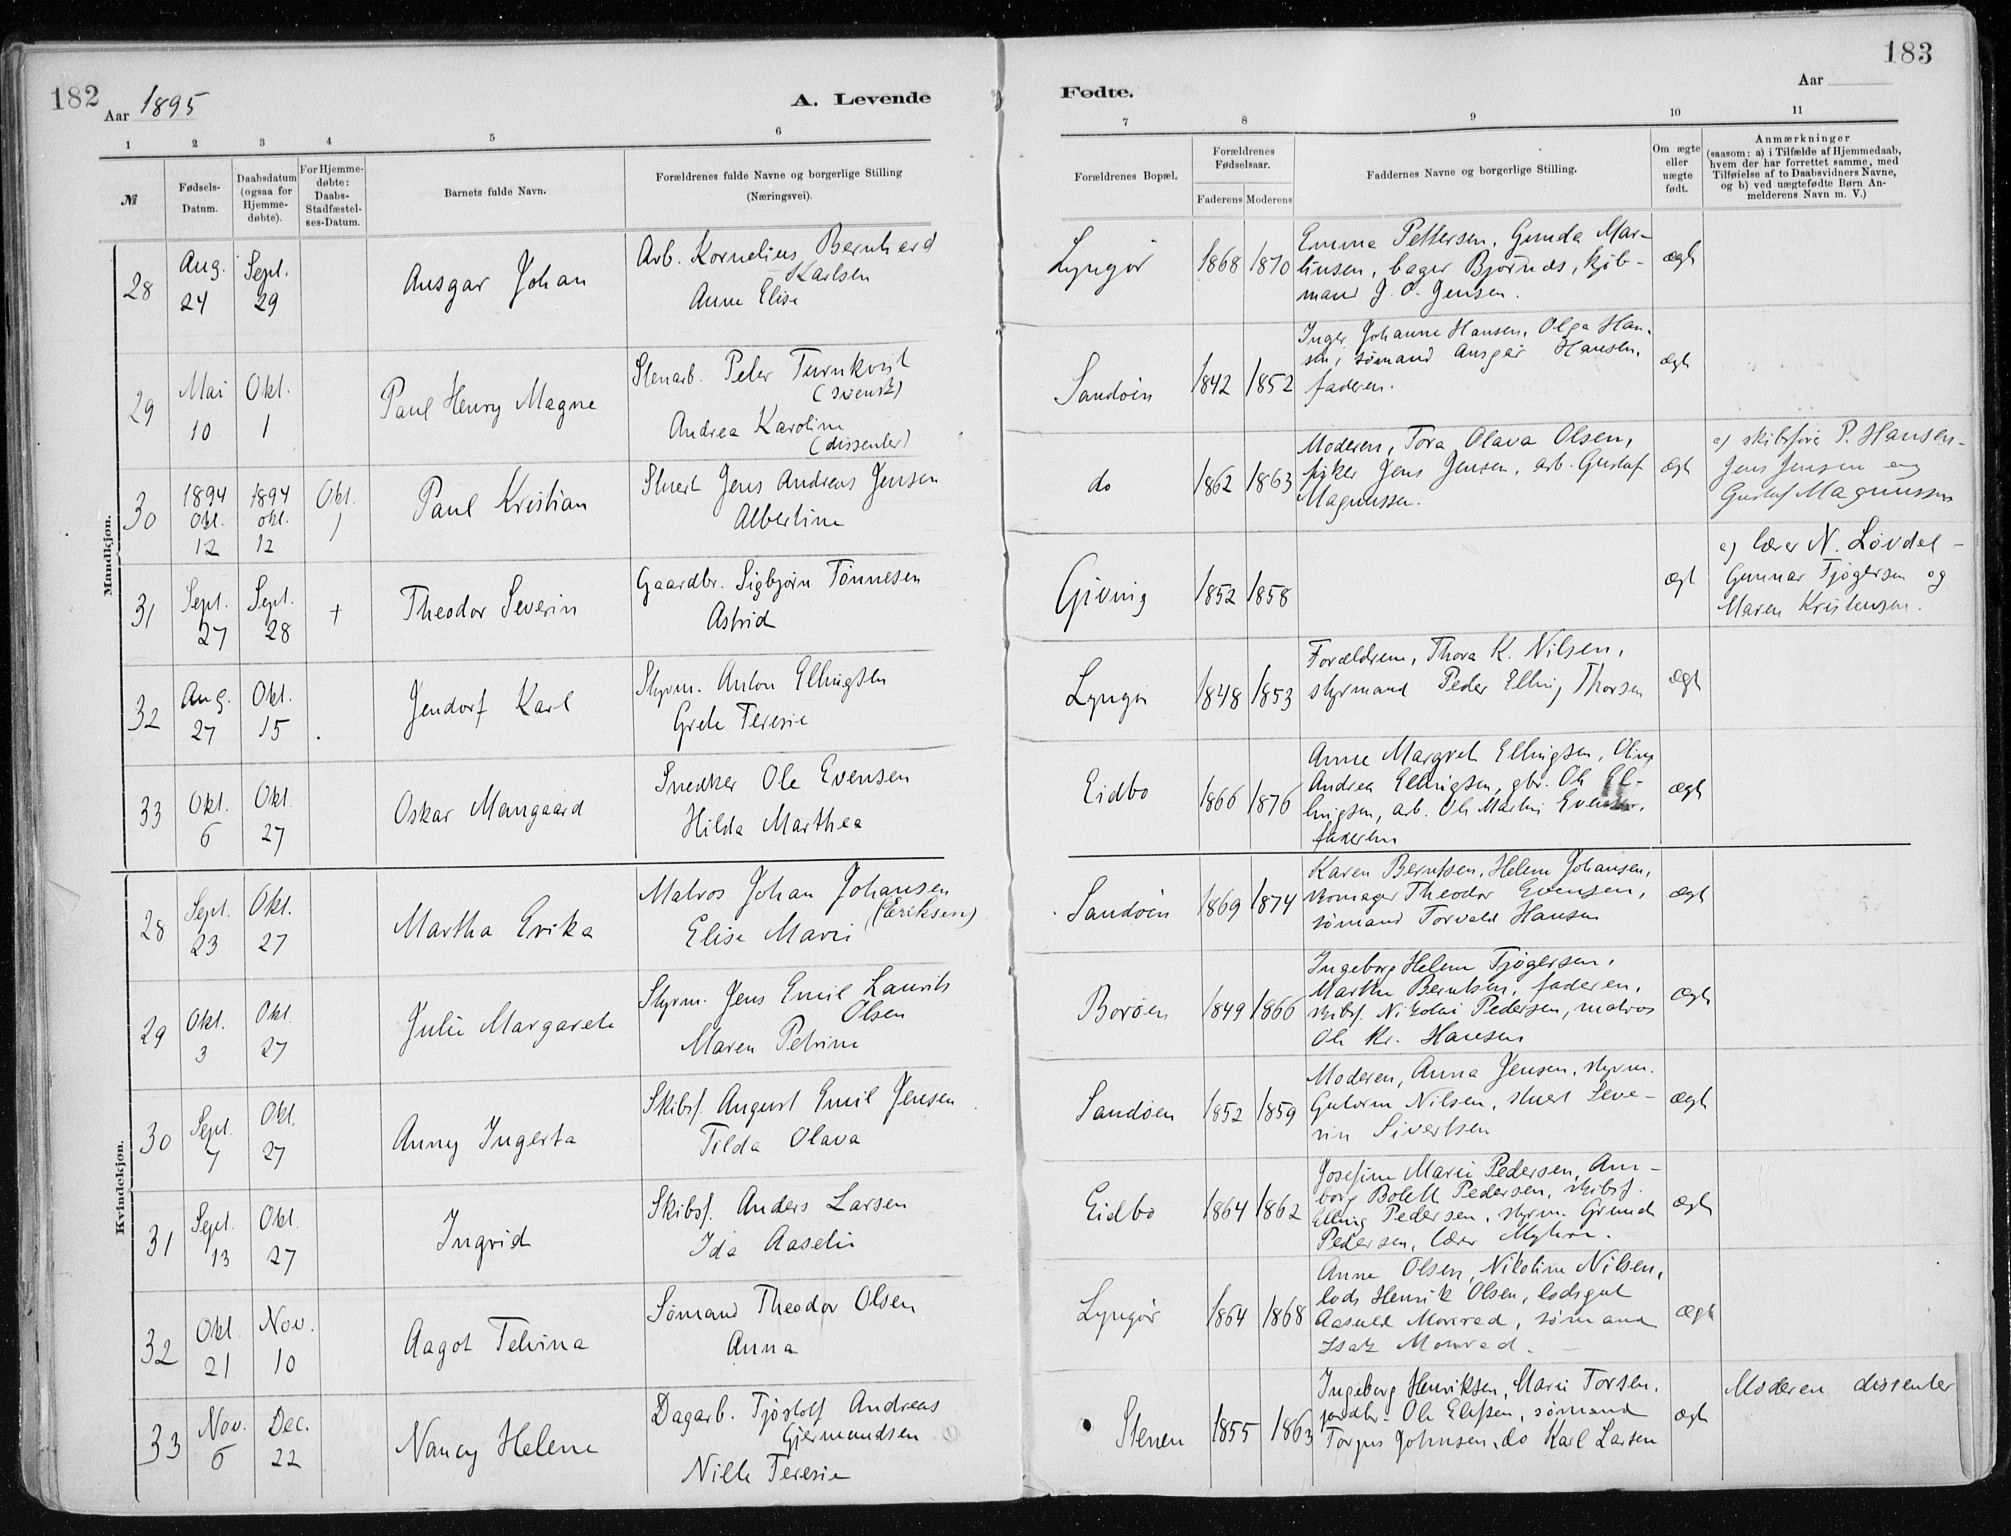 182
Aar 1895
A. Levende
1 2 3 4 5 6
№
Fødsels-
Datum.
Daabsdatum
(ogsaa for
Hjemme-
døbte).
For Hjemme-
døbte:
Daabs-
Stadfæstel-
ses-Datum.
Barnets fulde Navn.
Forældrenes fulde Navne og borgerlige Stilling
(Næringsvei).
Mandkjøn.
28 Aug. 24 Sept. 29 Ansgar Johan
Arb. Kornelius Bernhard
Karlsen
Anne Elise
29 Mai 10 Okt. 1 Paul Henry Magne
Stenarb. Peter Turnkvist
(svensk)
Andrea Karoline
(dissenter)
30 1894 Okt. 12 1894 okt. 12 Okt. 1 Paul Kristian
Stuert Jens Andreas Jensen
Albertine
31 Sept. 27 Sept. 28 + Theodor Severin
Gaardbr. Sigbjørn Tønnesen
Astrid
32 Aug. 27 Okt. 15 Jendorf Karl
Styrm. Anton Ellingsen
Grete Teresie
33 Okt. 6 Okt. 27 Oskar Mangaard
Snedker Ole Evensen
Hilda Marthea
Kvindekjøn.
28 Sept. 23 Okt. 27 Martha Erika
Matros Johan Johansen
(Eriksen)
Elise Marie
29 Okt. 3 Okt. 27 Julie Margarete
Styrm. Jens Emil Laurits
Olsen
Maren Petrine
30 Sept. 7 Okt. 27 Anny Ingerta
Skibsf. August Emil Jensen
Tilda Olava
31 Sept. 13 Okt. 27 Ingrid
Skibsf. Anders Larsen
Ida Aaselie
32 Okt. 21 Nov. 10 Aagot Telvina
Sømand Theodor Olsen
Anna
33 Nov. 6 Dec. 22 Nancy Helene
Dagarb. Tjøstolf Andreas
Gjermundsen
Nille Teresie
183
Fødte.
Aar
7 8 9 10 11
Forældrenes Bopæl.
Forældrenes
Fødselsaar.
Faderens Moderens
Faddernes Navne og borgerlige Stilling.
Om ægte
eller
uægte
født.
Anmærkninger
(saasom: a) i Tilfælde af Hjemmedaab,
hvem der har forrettet samme, med
Tilføielse af to Daabsvidners Navne,
og b) ved uægtefødte Børn An-
melderens Navn m. V.)
Lyngør 1868 1870
Emma Pettersen, Gunda Mar-
tinsen, bager Bjørnes, kjøb-
mand J. O. Jensen.
ægt
Sandøen 1842 1852
Inger Johanne Hansen, Olga Han-
sen, sømand Ansgar Hansen,
faderen.
ægt
do 1862 1863
Moderen, Tora Olava Olsen,
Jens Jensen, arb. Gustaf
Magnussen.
ægt
a) skibsfører P. Hansen -
Jens Jensen og
Gustaf Magnussen
Gjeving 1852 1858
ægt
a) lærer N. Løvdal -
Gunnar Tjøgersen og
Maren Kristensen.
Lyngør 1848 1853
Forældrene, Thora K. Nilsen,
styrmand Peder Elling Thorsen
ægt
Eidbo 1866 1876
Anne Margret Ellingsen, Oline
Andrea Ellingsen, gbr. Ole El-
lingsen, arb. Ole Martin Evensen,
faderen
ægt
Sandøen 1869 1874
Karen Berntsen, Helene Johansen,
skomager Theodor Evensen,
sømand Torvald Hansen
ægt
Borøen 1849 1866
Ingeborg Helene Tjøgersen,
Marthe Berntsen, faderen,
skibsf. Nikolai Pedersen, matros
Ole Kr. Hansen
ægt
Sandøen 1852 1859
Moderen, Anna Jensen, styrm.
Gutorm Nilsen, stuert Seve-
rin Sivertsen
ægt
Eidbo 1864 1862
Josefine Marie Pedersen, Ann-
borg Bolette Pedersen, skibsf.
Elling Pedersen, styrm. Gerund
Pedersen, lærer Myhre.
ægt
Lyngør 1864 1868
Anne Olsen, Nikoline Nilsen,
lods Henrik Olsen, lodsgut
Aasuld Monrad, sømand
Isak Monrad. -
ægt
Stenen 1855 1863
Ingeborg Henriksen, Marie Torsen,
jordbr. Ole Elefsen, sømand
Torjus Johnsen, do Karl Larsen
ægt
Moderen dissenter